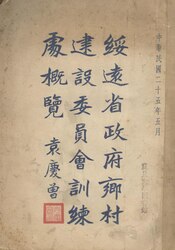 中華民國二十五年五月
綏遠省政府鄉村
建設委員會訓練
處概覽
袁慶曾